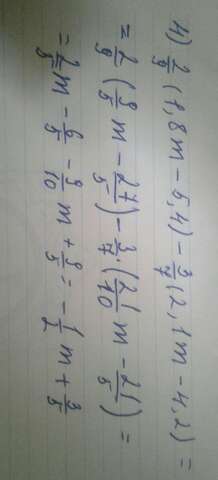 4) 2/9 (1,8m - 5,4) - 3/7 (2,1m - 4,2) =
= 2/9 (9/5 m - 27/5) - 3/7 · (21/10 m - 21/5) =
= 2/5 m - 6/5 - 9/10 m + 9/5 = - 1/2 m + 3/5